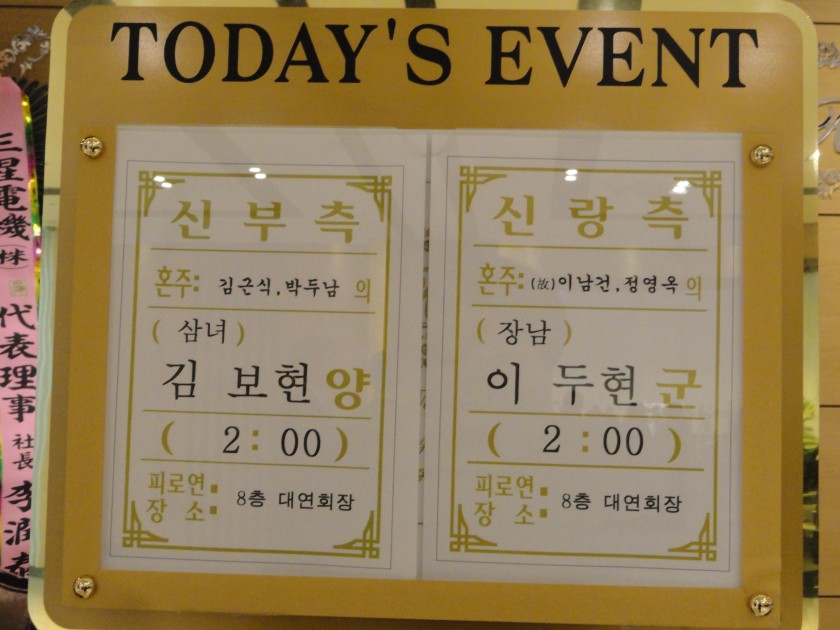 TODAY'S EVENT
신부측
혼주: 김근식,박두남 의
( 삼녀 )
김 보현 양
( 2 : 00 )
피로연
장 소 : 8층 대연회장
신랑측
혼주: (故)이남건,정영옥 의
( 장남 )
이 두현 군
( 2 : 00 )
피로연
장 소 : 8층 대연회장
三星電機(株) 代表理事 社長 李潤泰